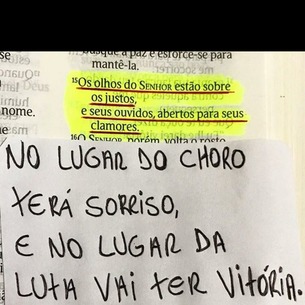 busque a paz e esforce-se para
mantê-la.
¹⁵Os olhos do SENHOR estão sobre
os justos,
e seus ouvidos, abertos para seus
clamores.
nome.
¹⁶O SENHOR, porém, volta o rosto
NO LUGAR DO CHORO
TERÁ SORRISO,
E NO LUGAR DA
LUTA VAI TER VITÓRIA.